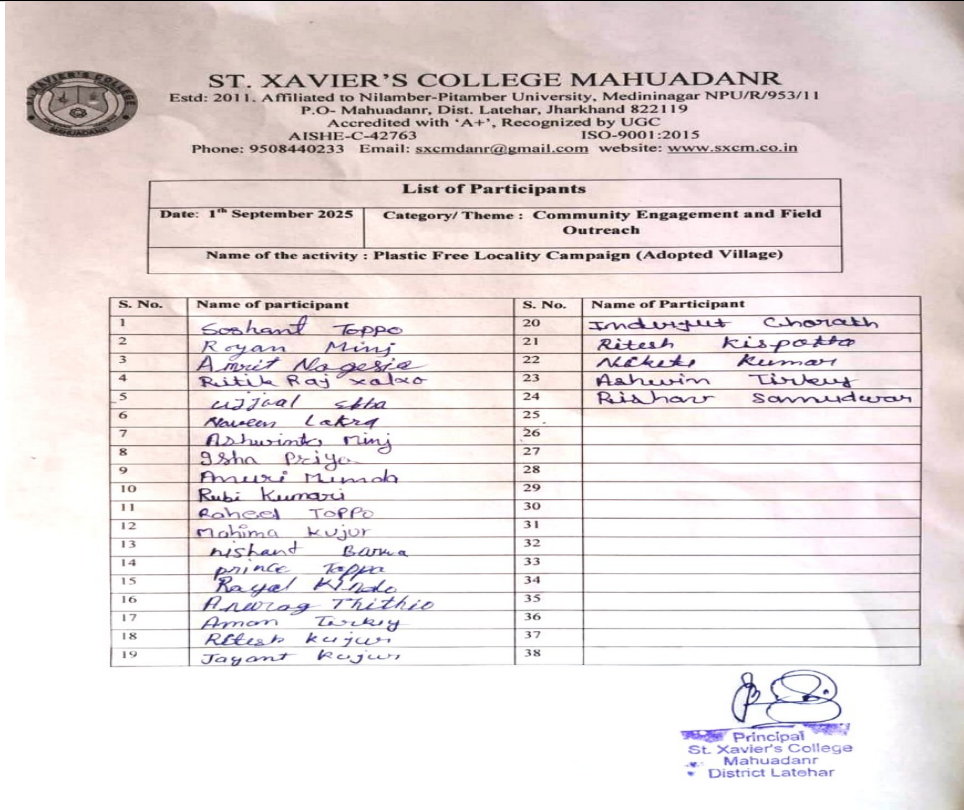 ST. XAVIER'S COLLEGE
MAHUADANR
ST. XAVIER'S COLLEGE MAHUADANR
Estd: 2011, Affiliated to Nilamber-Pitamber University, Medininagar NPU/R/953/11
P.O- Mahuadanr, Dist. Latehar, Jharkhand 822119
Accredited with 'A+', Recognized by UGC
AISHE-C-42763 ISO-9001:2015
Phone: 9508440233 Email: sxcmdanr@gmail.com website: www.sxcm.co.in
List of Participants
Date: 1th September 2025 Category/ Theme : Community Engagement and Field
Outreach
Name of the activity : Plastic Free Locality Campaign (Adopted Village)
S. No. Name of participant S. No. Name of Participant
1 Soshant Toppo 20 Chorath
2 Royan Minj 21 Ritesh Kispotta
3 Amrit Nagesia 22 Kumar
4 Ritik Raj xalxo 23 Ashwin Tirkey
5 24 Rishav
6 Naveen Lakra 25
7 Minj 26
8 Isha Priya 27
9 28
10 Rubi Kumari 29
11 Raheel TOPPO 30
12 Mahima Kujur 31
13 nishant 32
14 prince Toppo 33
15 Kindo 34
16 Anurag Thithio 35
17 Aman 36
18 Ritesh kujur 37
19 Jayant kujur 38
Principal
St. Xavier's College
Mahuadanr
District Latehar